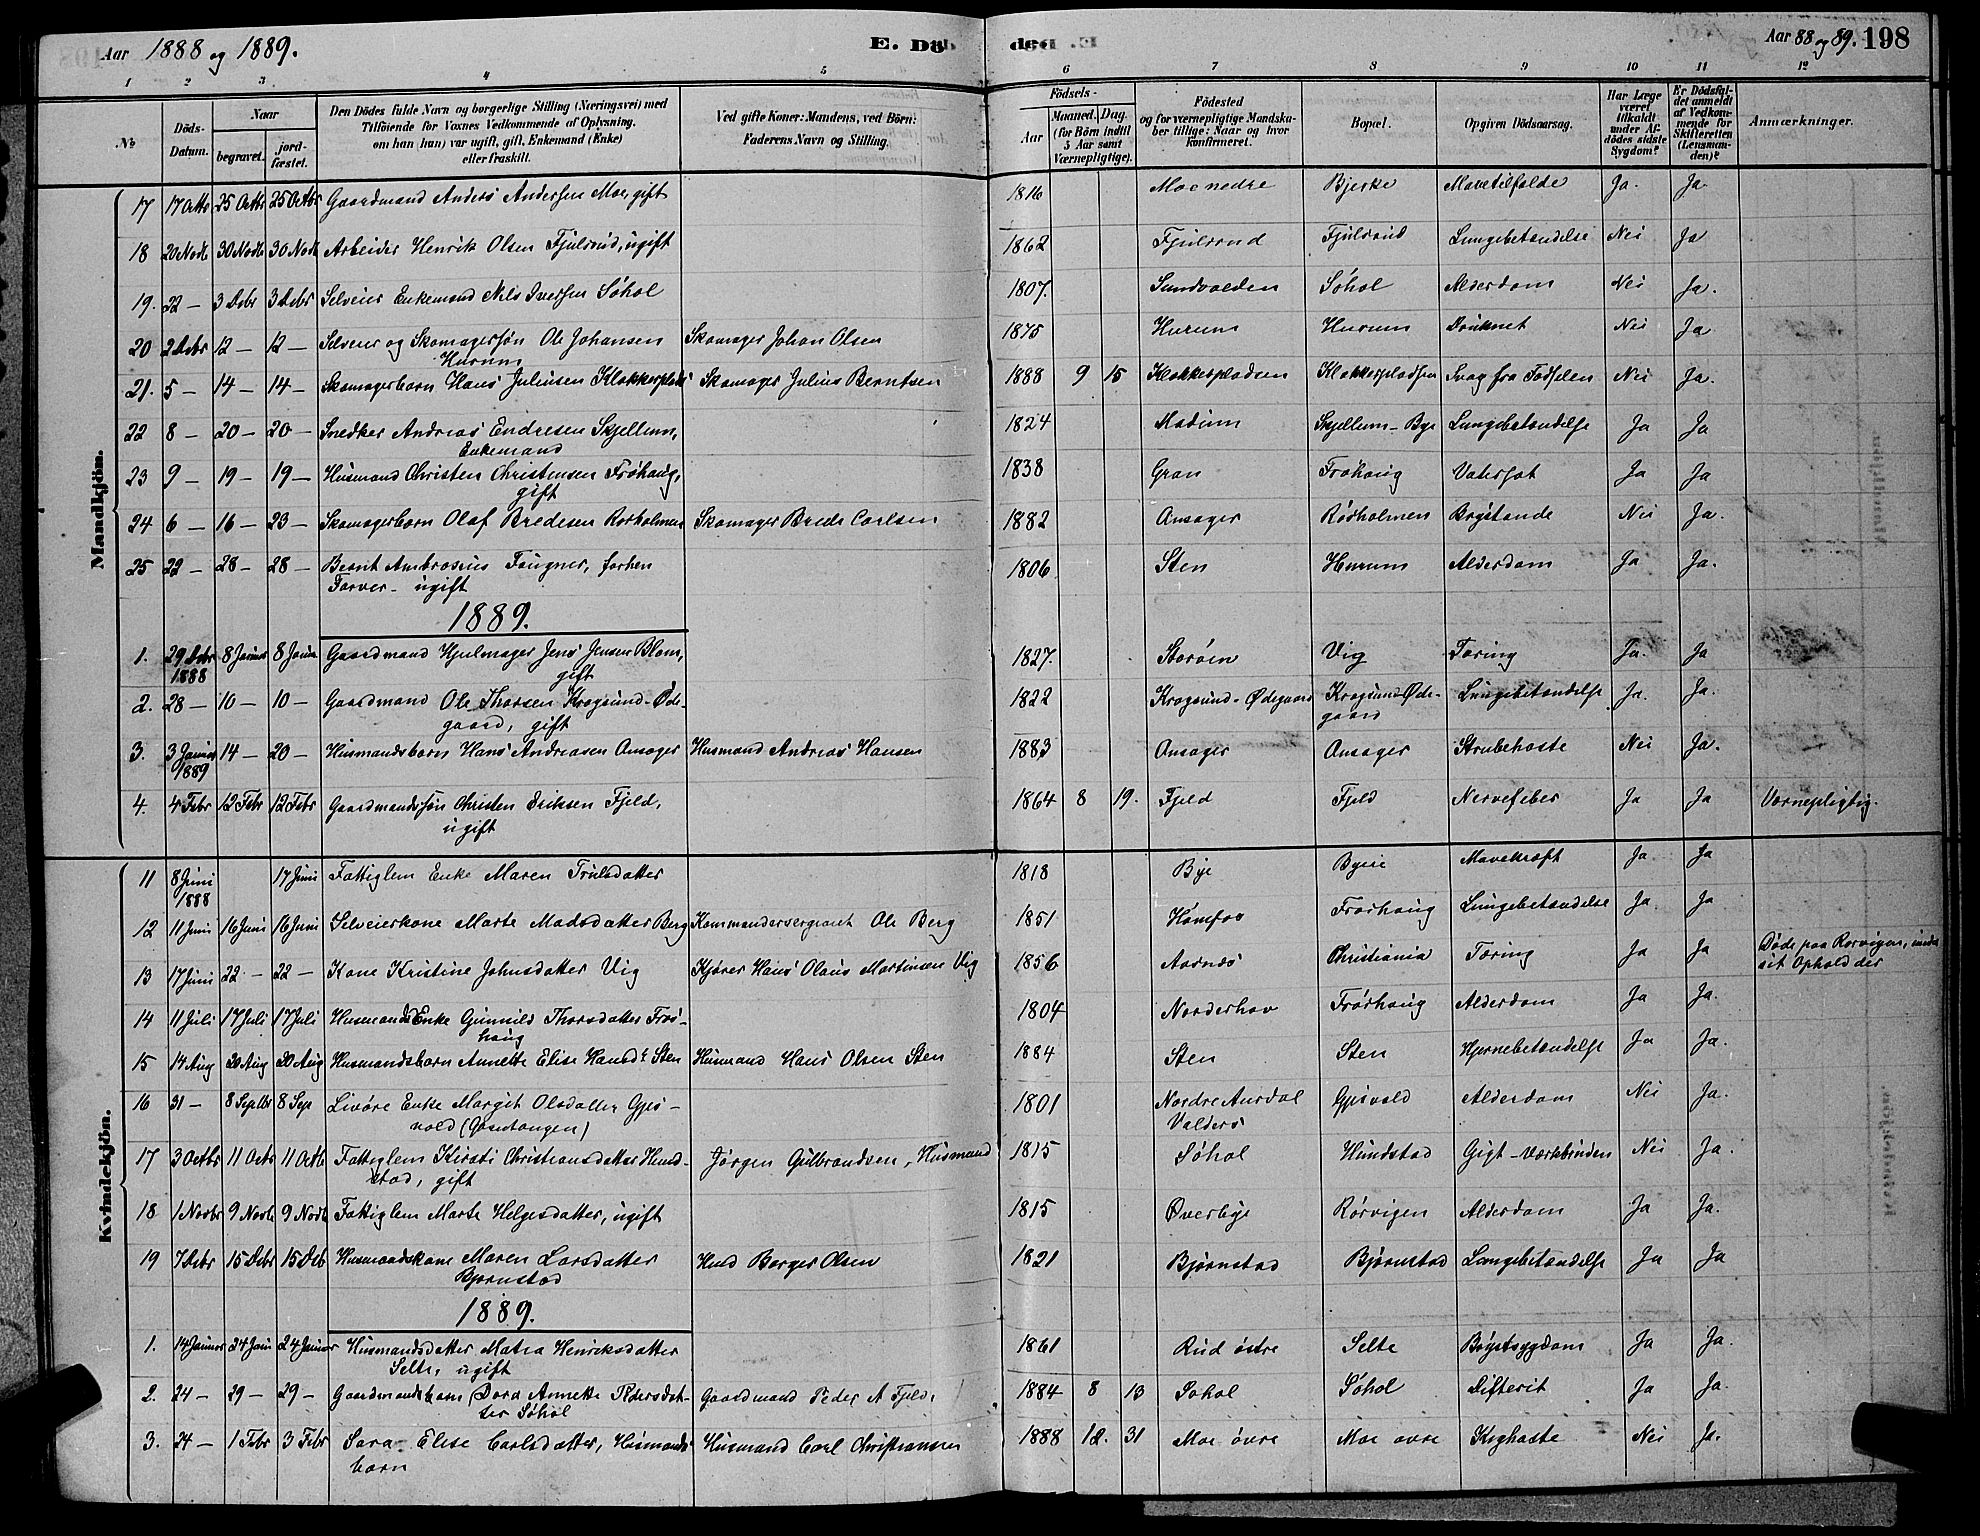 Aar 1888 og 1889. E. Dö
E. Död Aar 88 og 89. 198
1 2 3 4 5 6 7 8 9 10 11 12
No Döds-Datum. Naar begravet. jordfæstet. Den Dödes fulde Navn og borgerlige Stilling (Næringsvei) med Tilföiende for Voxnes Vedkommende af Oplysning, om han (hun) var ugift, gift, Enkemand (Enke) eller fraskilt. Ved gifte Koner: Mandens, ved Börn: Faderens Navn og Stilling. Födsels- Aar Maaned. Dag. (for Börn indtil 5 Aar samt Værnepligtige). Födested og for værnepligtige Mandskaber tillige: Naar og hvor konfirmeret. Bopæl. Opgiven Dödsaarsag. Har Læge været tilkaldt under Afdödes sidste Sygdom? Er Dödsfaldet anmeldt af Vedkommende for Skifteretten (Lensmanden)? Anmærkninger.
Mandkjön.
17 17 Octbr 25 Octbr 25 Octbr Gaardmand Anders Andersen Moe, gift 1816 Moe nedre Bjerke Mavetilfælde Ja. Ja.
18 20 Novb 30 Novb 30 Novb Arbeider Henrik Olsen Fjulsrud, ugift 1862 Fjulsrud Fjulsrud Lungebetændelse Nei Ja
19. 22 — 3 Debr 3 Debr Selveier Enkemand Nils Iversen Söhol 1807. Sundvolden Söhol Alderdom Nei Ja.
20 2 Debr 12 — 12 — Selveier og Skomagersön Ole Johansen Skomager Johan Olsen 1875 Hurum Hurum Druknet Nei Ja
Hurum
21. 5 — 14 — 14 — Skomagerbarn Hans Juliusen Klokkerplads Skomager Julius Berntsen 1888 9 15 Klokkerpladsen Klokkerpladsen Svag fra Födselen Nei Ja.
22 8 — 20 — 20 — Snedker Andreas Endresen Skjellum, 1824 Modum Skjellum - Bye Lungebetændelse Ja Ja
Enkemand
23 9 — 19 — 19 — Husmand Christen Christensen Fröhaug, 1838 Gran Fröhaug Vatersot Ja Ja
gift
24 6 — 16 — 23 — Skomagerbarn Olaf Bredesen Rorholmen Skomager Brede Carlsen 1882 Onsager Rödholmen Brystonde Nei Ja.
25 22 — 28 — 28 — Bernt Ambrosius Fougner, forhen 1806 Sten Hurum Alderdom Ja Ja.
Farver - ugift
1889.
1. 29 Debr 8 Januar 8 Januar Gaardmand Hjulmager Jens Jensen Blom, 1827. Storöen Vig Tæring Ja. Ja
1888 gift
2. 28 — 10 — 10 — Gaardmand Ole Thorsen Krogsund-Öde- 1822 Krogsund-Ødegaard Krogsund-Øde- Lungebetændelse Ja. Ja.
gaard, gift gaard
3. 3 Januar 14 — 20 — Husmandsbarn Hans Andreasen Onsager Husmand Andreas Hansen 1883 Onsager Onsager Strubehoste Nei Ja.
1889
4. 4 Febr 12 Febr 12 Febr Gaardmandssön Christen Eriksen Fjeld, 1864 8 19. Fjeld Fjeld Nervefeber Ja Ja Værnepligtig.
ugift
Kvindekjön.
11 8 Juni 17 Juni Fattiglem Enke Maren Trulsdatter 1818 Bye Byeie Mavekræft Ja Ja
1888
12 11 Juni 16 Juni 16 Juni Selveierkone Marte Madsdatter Berg Kommandersergeant Ole Berg 1851 Hönefos Frörhaug Lungebetændelse Ja. Ja
13 17 Juni 22 — 22 — Kone Kristine Johnsdatter Vig Kjörer Hans Olaus Martinsen Vig 1856 Aarnæs Christiania Tæring Ja Ja Döde paa Rorvigen, under
sit Ophold der
14 11 Juli 17 Juli 17 Juli Husmands Enke Gunnild Thorsdatter Frös- 1804 Norderhov Frörhaug Alderdom Ja Ja.
haug
15 14 Aug 20 Aug 20 Aug Husmandsbarn Annette Elise Hansd: Sten Husmand Hans Olsen Sten 1884 Sten Sten Hjernebetændelse Ja Ja.
16 31 — 8 Septbr 8 Sep Livöre Enke Margit Olsdatter Gjes- 1801 Nordre Aurdal Gjesvold Alderdom Nei Ja.
vold (Gjesetangen) Valders
17 3 Octbr 11 Octbr 11 Octb Fattiglem Kirsti Christiansdatter Hund- Jörgen Gulbrandsen, Husmand 1815 Söhol Hundstad Gigt - Værkbruden Nei Ja.
stad, gift
18 1 Novbr 9 Novb 9 Novb Fattiglem Marte Helgesdatter, ugift 1815 Överbye Rörvigen Alderdom Ja Ja.
19 7 Debr 15 Debr 15 Deb Husmandskone Maren Larsdatter Husd Borger Olsen 1821 Bjørnstad Bjørnstad Lungebetændelse Ja Ja
Bjørnstad
1889.
1. 14 Januar 24 Jan 24 Januar Husmandsdatter Matea Henriksdatter 1861 Rud östre Selte Brystsygdom Ja Ja.
Selte, ugift
2. 24 — 29 — 29 — Gaardmandsbarn Dora Annette Pedersdat- Gaardmand Peder A Fjeld 1884 8 13 Sohol Söhol Difterit Ja Ja.
ter Söhol
3. 24 — 1 Febr 3 Febr Sara Elise Carlsdatter, Husmands Husmand Carl Christiansen 1888 12. 31 Moe övre Moe ovre Kighoste Nei Ja.
barn